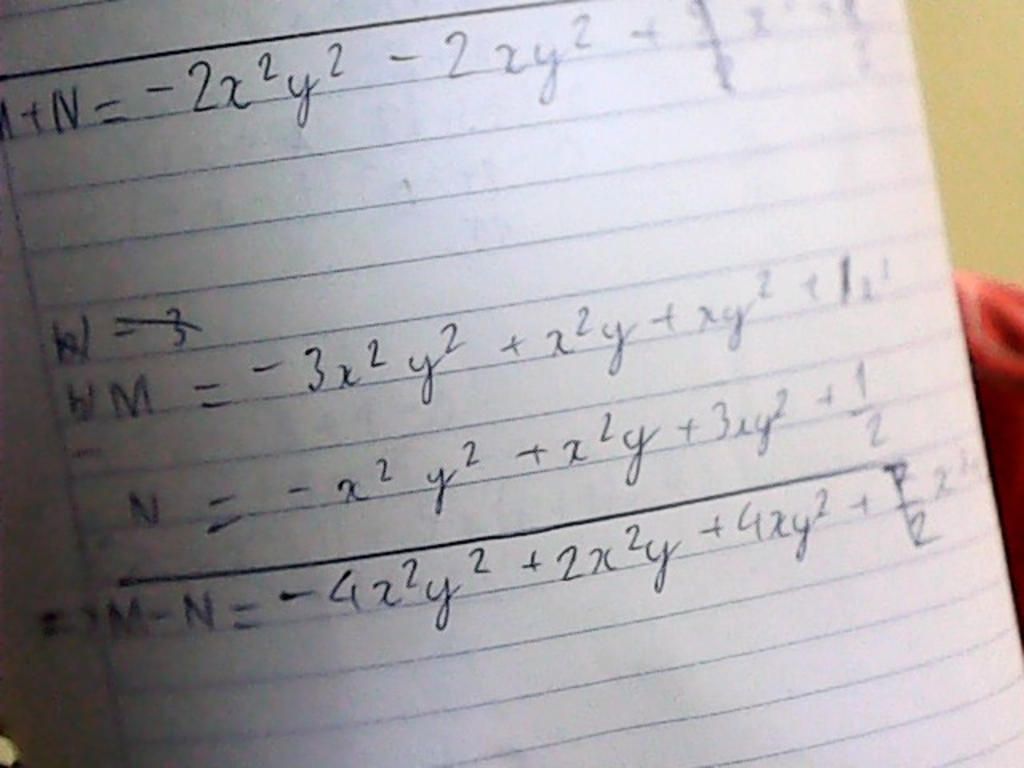 M+N = -2x²y² - 2xy² +
b) = 3
b) M = -3x²y² + x²y + xy² +
N = -x²y² + x²y + 3xy² + 1/2
=> M-N = -4x²y² + 2x²y + 4xy² +